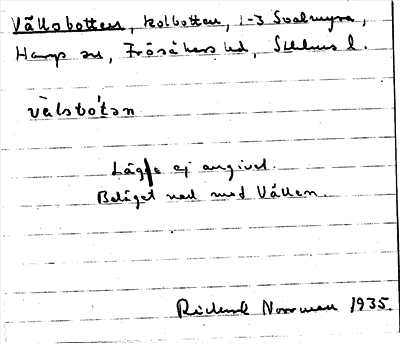 Vällsbotten, kolbotten, 1-3 Svalmyra,
Harps sn, Frösåkers hd, Sthlms l.
vä̀lsbòtən
Läge ej angivet.
Beläget ned mot Vällen.
Rickard Norrman 1935.